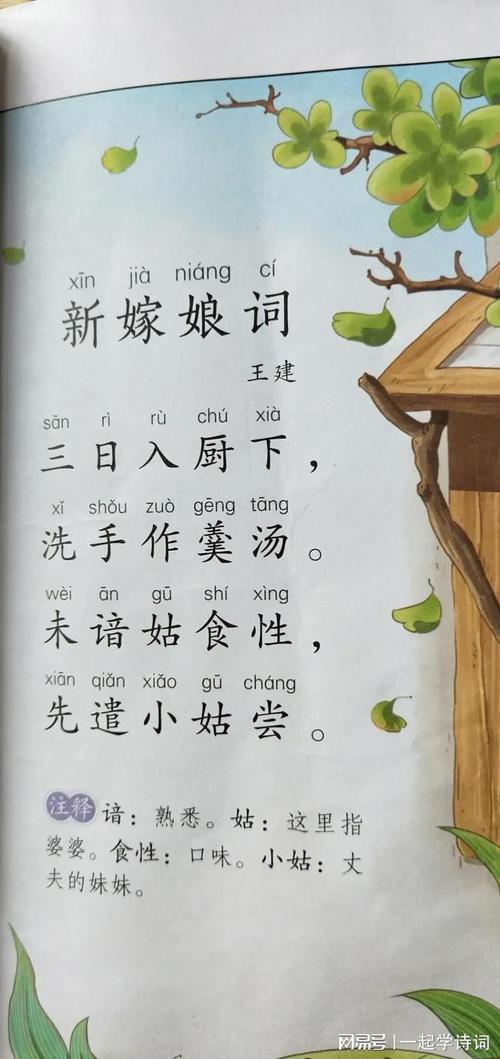 xīn jià niáng cí
新嫁娘词
王建
sān rì rù chú xià
三日入厨下，
xǐ shǒu zuò gēng tāng
洗手作羹汤。
wèi ān gū shí xìng
未谙姑食性，
xiān qiǎn xiǎo gū cháng
先遣小姑尝。
注释 谙：熟悉。姑：这里指
婆婆。食性：口味。小姑：丈
夫的妹妹。
网易号 | 一起学诗词